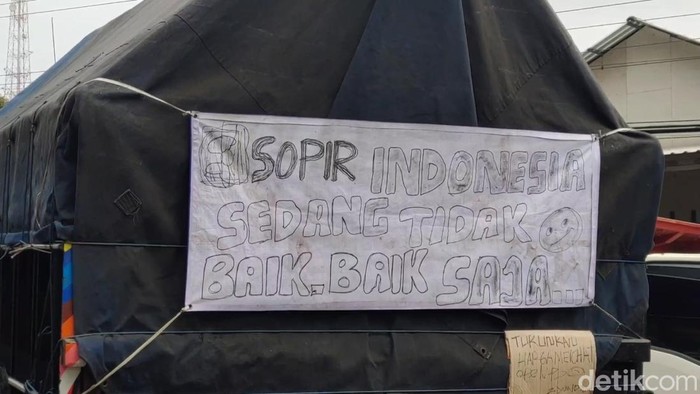 SOPIR INDONESIA
SEDANG TIDAK
BAIK-BAIK SAJA...
TURUNKAN
detikcom